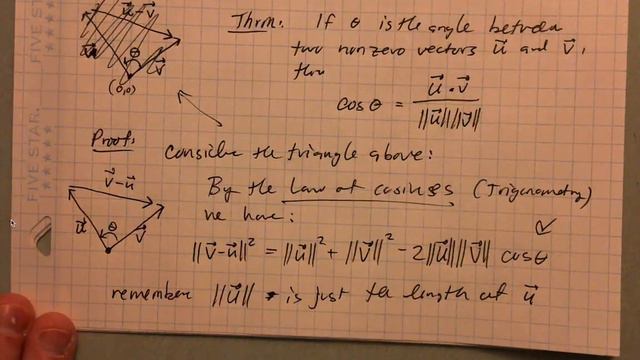 Thrm: If θ is the angle between
two nonzero vectors u⃗ and v⃗,
then
cosθ = u⃗·v⃗ / ||u⃗|| ||v⃗||
u⃗ θ v⃗
(0,0)
Proof: Consider the triangle above:
v⃗-u⃗
u⃗ θ v⃗
By the Law of cosines (Trigonometry)
we have:
||v⃗-u⃗||² = ||u⃗||² + ||v⃗||² - 2||u⃗|| ||v⃗|| cosθ
remember ||u⃗|| is just the length of u⃗
FIVE STAR.
FIVE STAR.